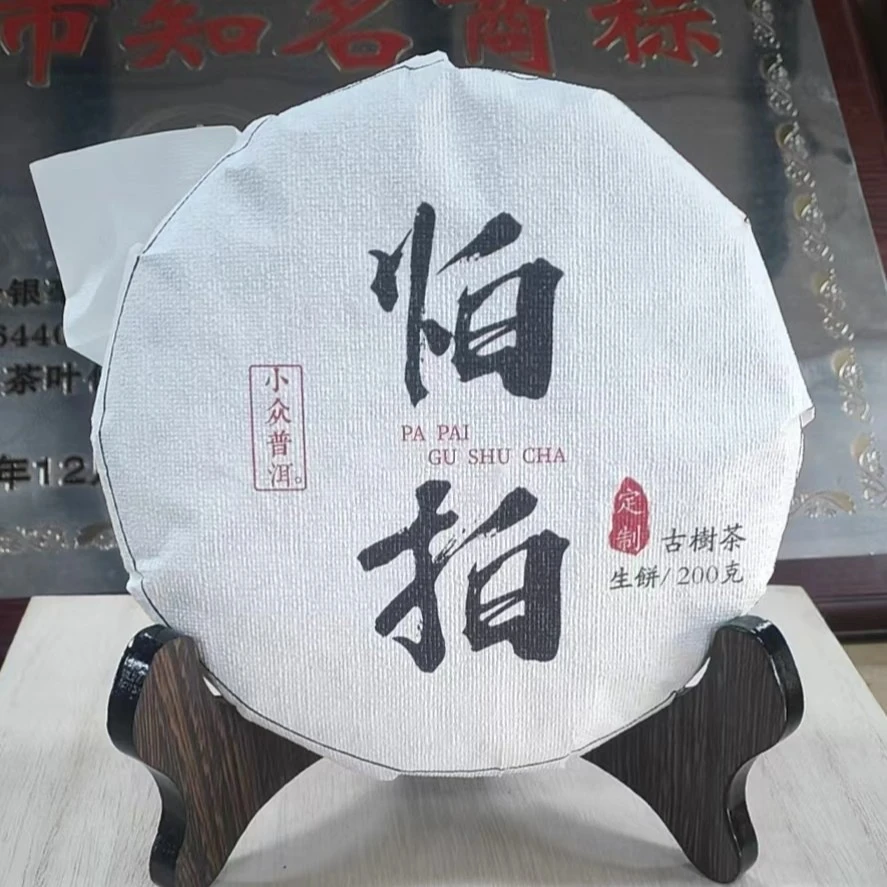 市知名商标
银
6440
茶叶
年12
怕
PA PAI
GU SHU CHA
拍
小众普洱。
定制
古樹茶
生餅/200克